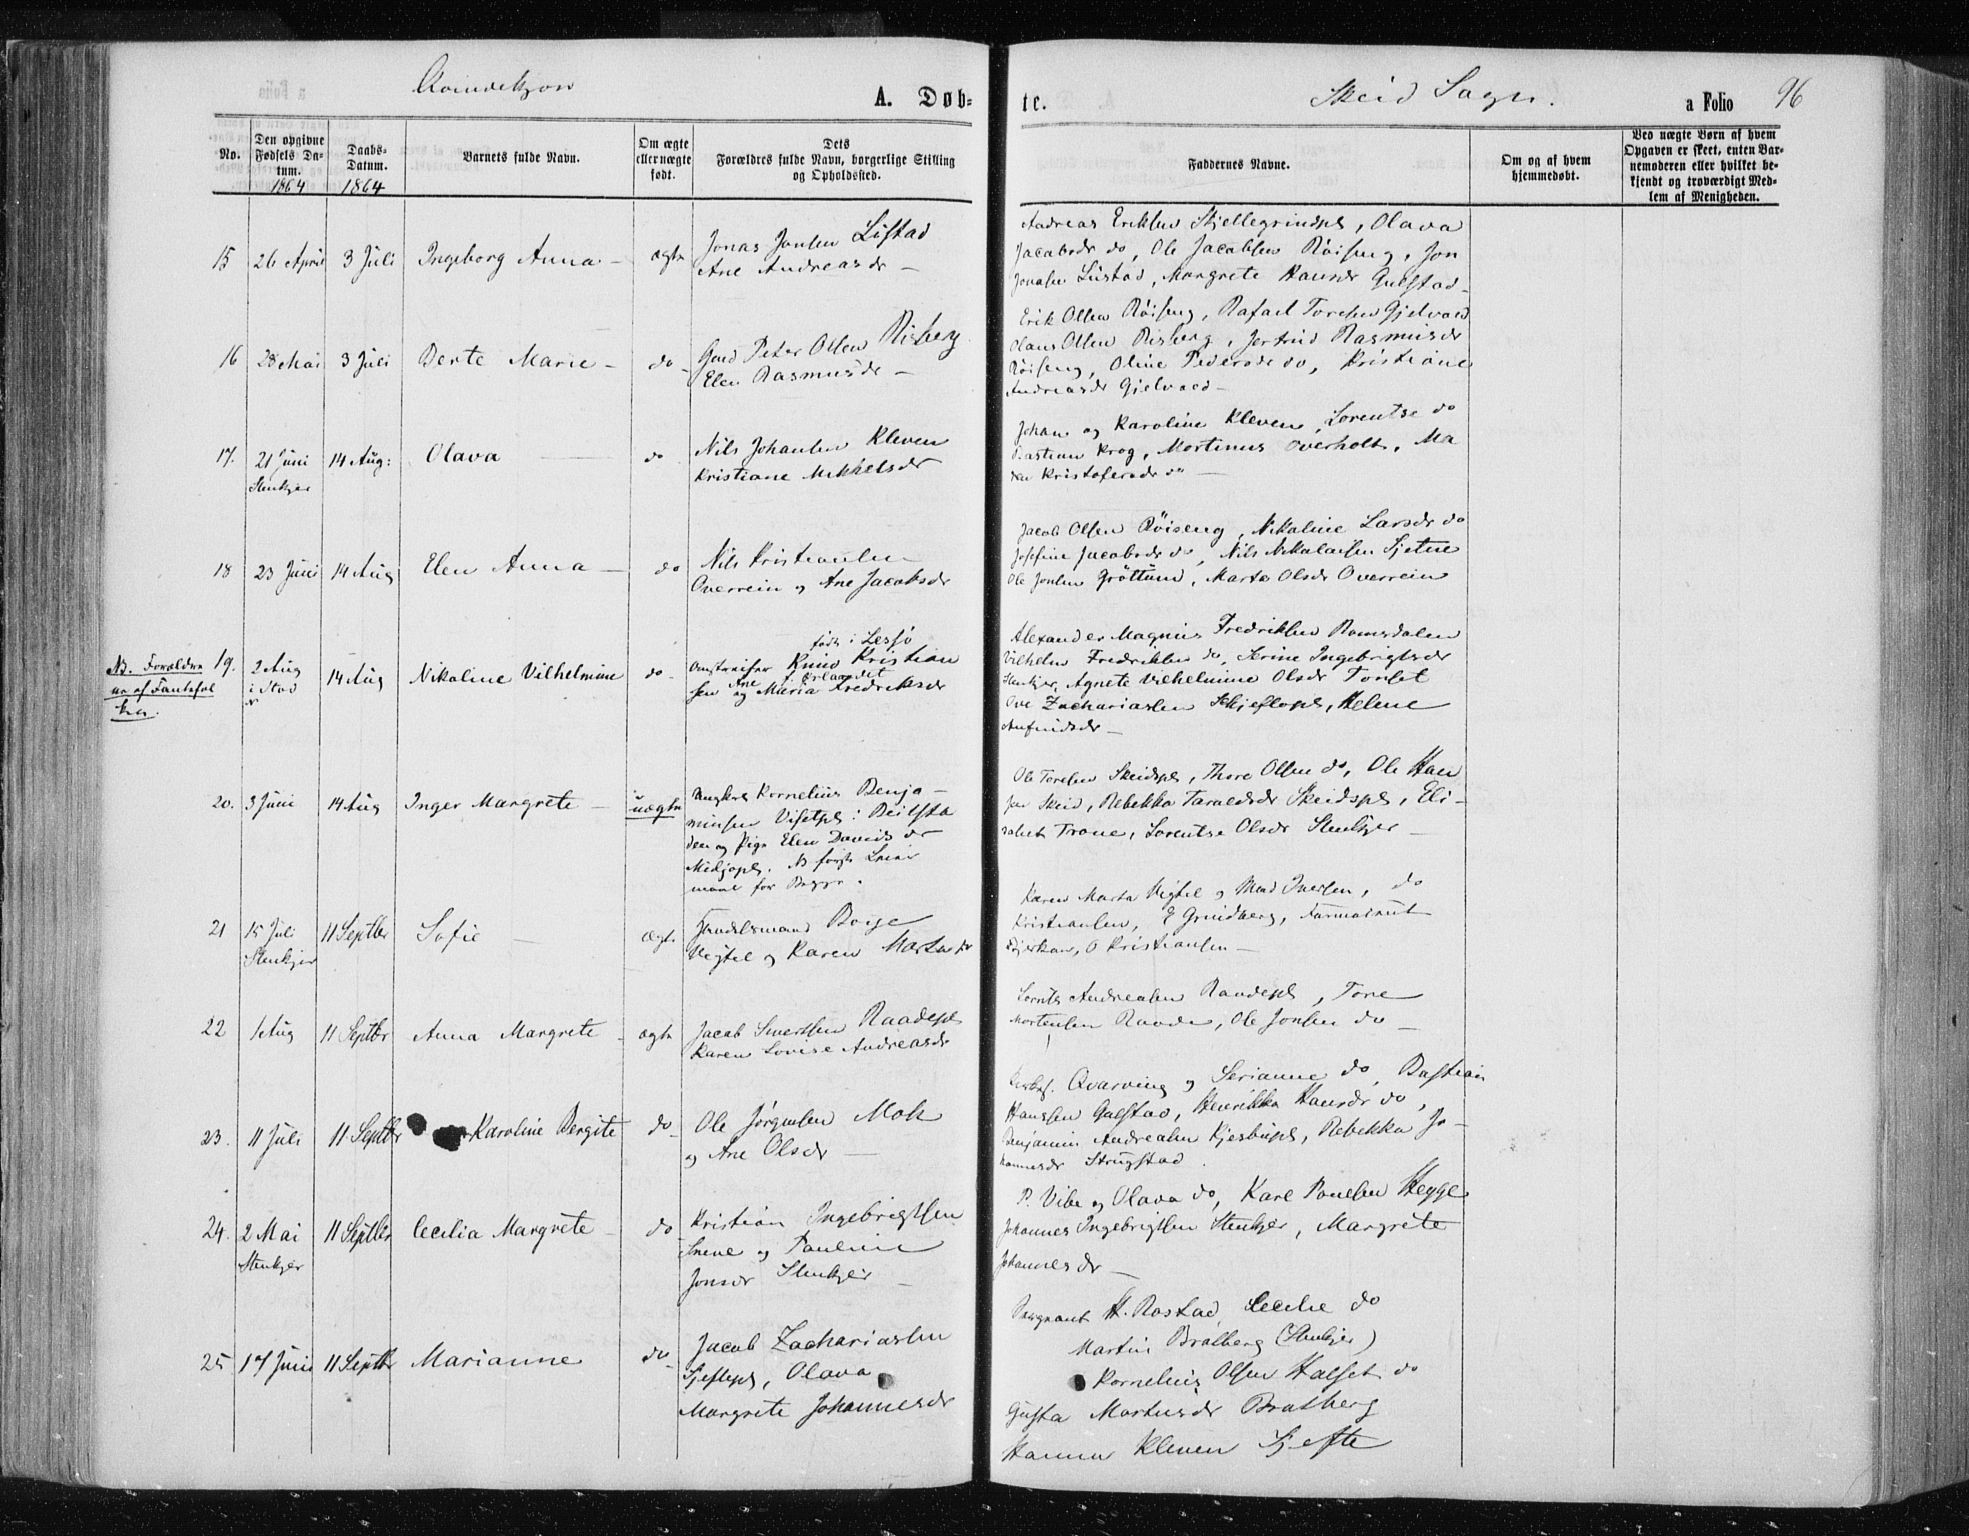 Qvindekjøn
A. Døb-
No.
Den opgivne
Fødsels Da-
tum.
1864
Daabs-
Datum.
1864
Barnets fulde Navn.
Om ægte
eller uægte
født.
Dets
Forældres fulde Navn, borgerlige Stilling
og Opholdssted.
15 26 April 3 Juli Ingeborg Anna ægte
Jonas Jonsen Lustad
Ane Andreasdr
16 28 Mai 3 Juli Berte Marie do
Peter Olsen Risberg
Elen Rasmusdr
17. 21 Juni 14 Aug: Olava do
Stenkjer
Nils Johansen Kleven
Kristiane Mikkelsdr
18 23 Juni 14 Aug Elen Anna do
Nils Kristiansen
Overrein og Ane Jacobsdr
NB. Forældrene
er af Fantefol
ket.
19. 2 Aug 14 Aug Nikoline Vilhelmine do
i Stod
født i Lesjø
Omstreifer Knud Kristian
sen og Ane Maria Fredriksdr
20. 3 Juni 14 Aug Inger Margrete uægte
Ungkarl Kornelius Benja-
minsen Viſetpl: Beitsta
den og Pige Elen Davidsdr
Midjopl. NB første Leier
maal for Begge.
21 15 Juli 11 Septbr Sofie ægte
Stenkjer
Handelsmand Borge
Vigtel og Karen Marta
22 1 Aug 11 Septbr Anna Margrete ægte
Jacob Sivertsen Raadepl
Karen Lovise Andreasdr
23. 11 Juli 11 Septbr Karoline Bergite do
Ole Jørgensen Mok
og Ane Olsdr
24. 2 Mai 11 Septbr Cecilia Margrete do
Stenkjer
Kristian Ingebrigtsen
Sneve og Pauline
Jonsdr Stenkjer
25 17 Juni 11 Septbr Marianne do
Jacob Zachariasen
Sjeftepl, Olava
Margrete Johannesdr
te.
Skeid Sogn.
a Folio 96
Faddernes Navne.
Om og af hvem
hjemmedøbt.
Ved uægte Børn af hvem
Opgaven er skeet, enten Bar-
nemoderen eller hvilket be-
kjendt og troværdigt Med-
lem af Menigheden.
Andreas Eriksen Skjellegrindpl, Olava
Jacobsdr do, Ole Jacobsen Røiseng, Jon
Jonasen Lustad, Margrete Hansdr Gulstad
Erik Olsen Røiseng, Rafael Toresen Gjelvold
Hans Olsen Risberg, Jertrud Rasmusdr
Røiseng, Oline Pedersdr do, Kristiane
Andreasdr Gjelvold
Johan og Karoline Kleven, Lorentse do
Bastian Krog, Mortinus Overholt, Ma
ren Kristofersdr do
Jacob Olsen Røiseng, Nikoline Larsdr do
Josefine Jacobsdr do, Nils Nikolaisen Sjetne
Ole Jonsen Grøttum, Marta Olsdr Overrein
Alexander Magnus Fredriksen Romsdalen
Vilhelm Fredriksen do, Serine Ingebrigtsdr
Stenkjer, Agnete Vilhelmine Olsdr Tonset
Ove Zachariasen Skjeftepl, Helene
Arnfindsdr
Ole Toresen Skeidspl, Thore Olsen do, Ole Han
sen Skeid, Rebekka Taraldsdr Skeidspl, Eli-
sabet Trane, Lorentse Olsdr Stenkjer
Karen Marta Vigtel og Mad Iversen, do
Kristiansen, E Grindberg,
O Kristiansen
Lornts Andreasen Raadepl, Tore
Mortensen Raade, Ole Jonsen do
Qvarving og Serianne do, Bastian
Hansen Gulstad, Henrikka Hansdr do,
Benjamin Andreasen Kjesbupl, Rebekka Jo-
hannesdr Strugstad.
P. Vibe og Olava do, Karl Paulsen Hegge
Johannes Ingebrigtsen Stenkjer, Margrete
Johannesdr
H. Rostad, Cecilie do
Martin Bratberg (Stenkjer)
Kornelius Olsen Halset do
Gusta Martinsdr Bratberg
Hanna Kleven Sjefte